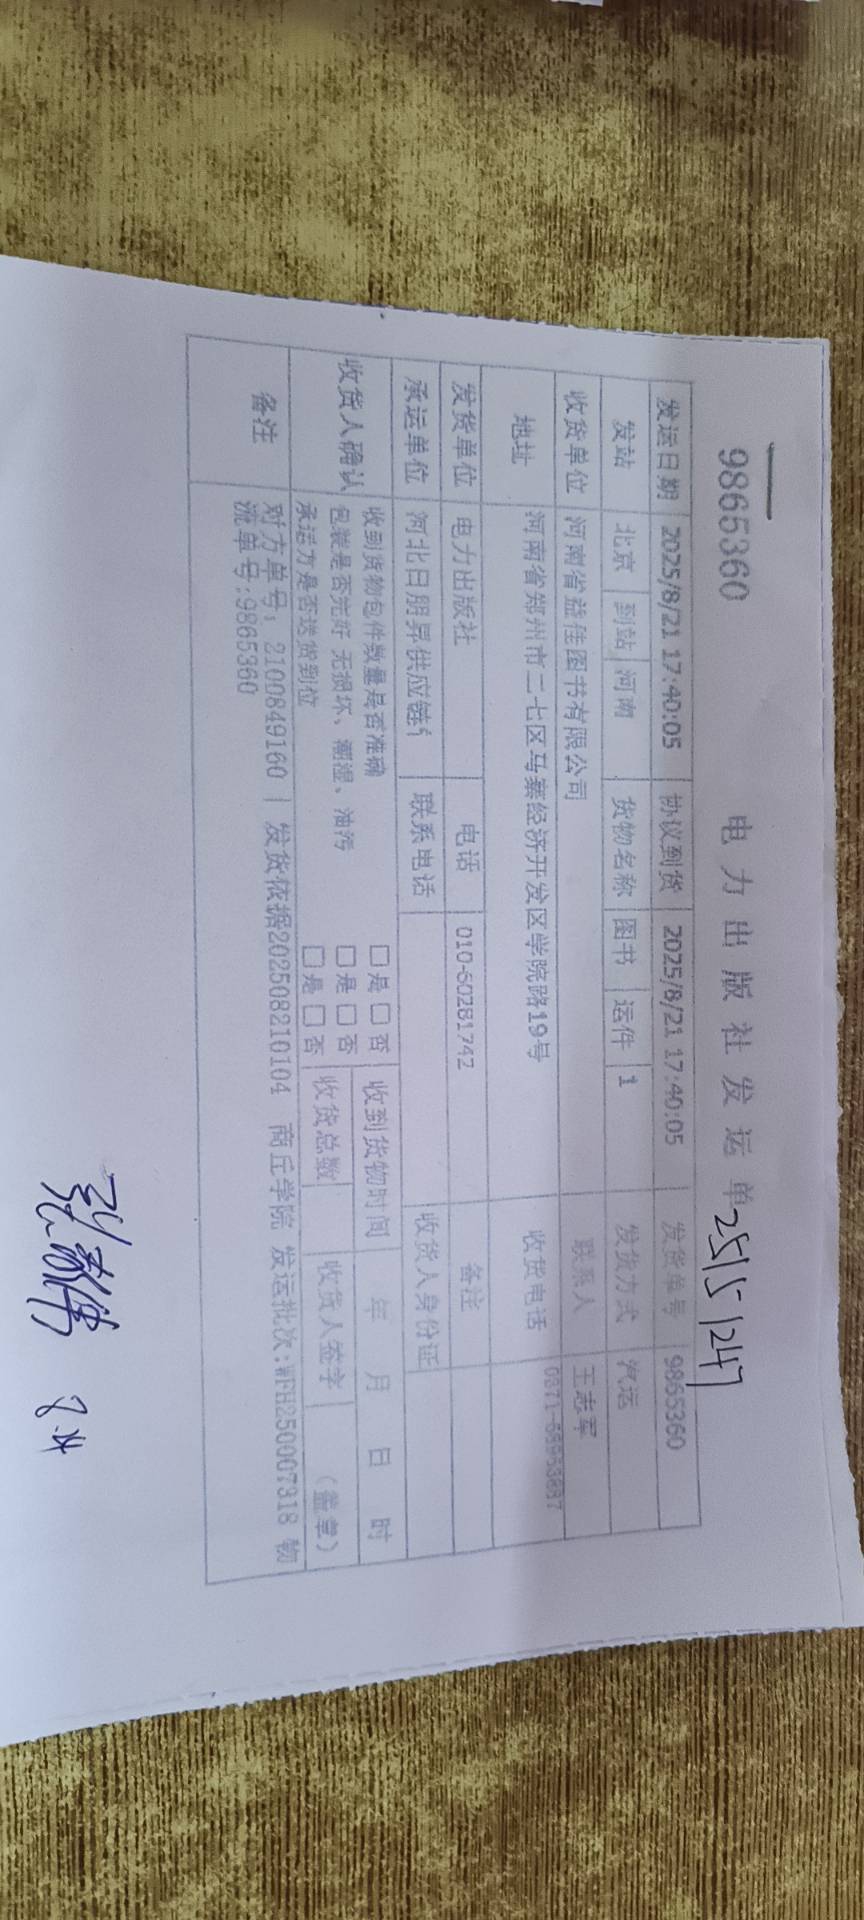 9865360 电力出版社发运单 25151247
发运日期 2025/8/21 17:40:05 协议到货 2025/8/21 17:40:05 发货单号 9865360
发站 北京 到站 河南 货物名称 图书 运件 1 发货方式 汽运
收货单位 河南省益佳图书有限公司 联系人 王志军
地址 河南省郑州市二七区马寨经济开发区学院路19号 收货电话
发货单位 电力出版社 电话 010-60281742 备注
承运单位 河北日朋昇供应链 联系电话 收货人身份证
收货人确认 收到货物包件数量是否准确 □是 □否 收到货物时间 年 月 日 时
包装是否完好 无损坏、潮湿、油污 □是 □否 收货总数 收货人签字 (盖章)
承运方是否送货到位 □是 □否
备注 对方单号：2100849160 | 发货依据202508210104 商丘学院 发运批次:WFH250007318 物
流单号:9865360